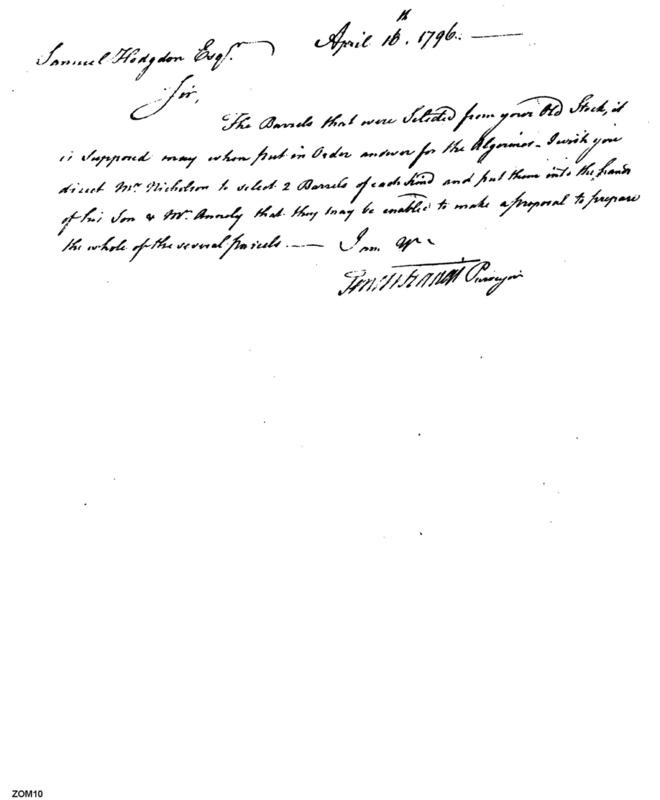 April 16th. 1796.
Samuel Hodgdon Esqr.
Sir,
The Barrels that were Selected from your Old Stock, it
is Supposed may when put in Order answer for the Algerines - I wish you
direct Mr. Nicholson to select 2 Barrels of each Kind and put them into the hands
of his Son & Mr. Annely that they may be enabled to make a proposal to prepare
the whole of the several parcels. — I am &c
Purveyor
ZOM10